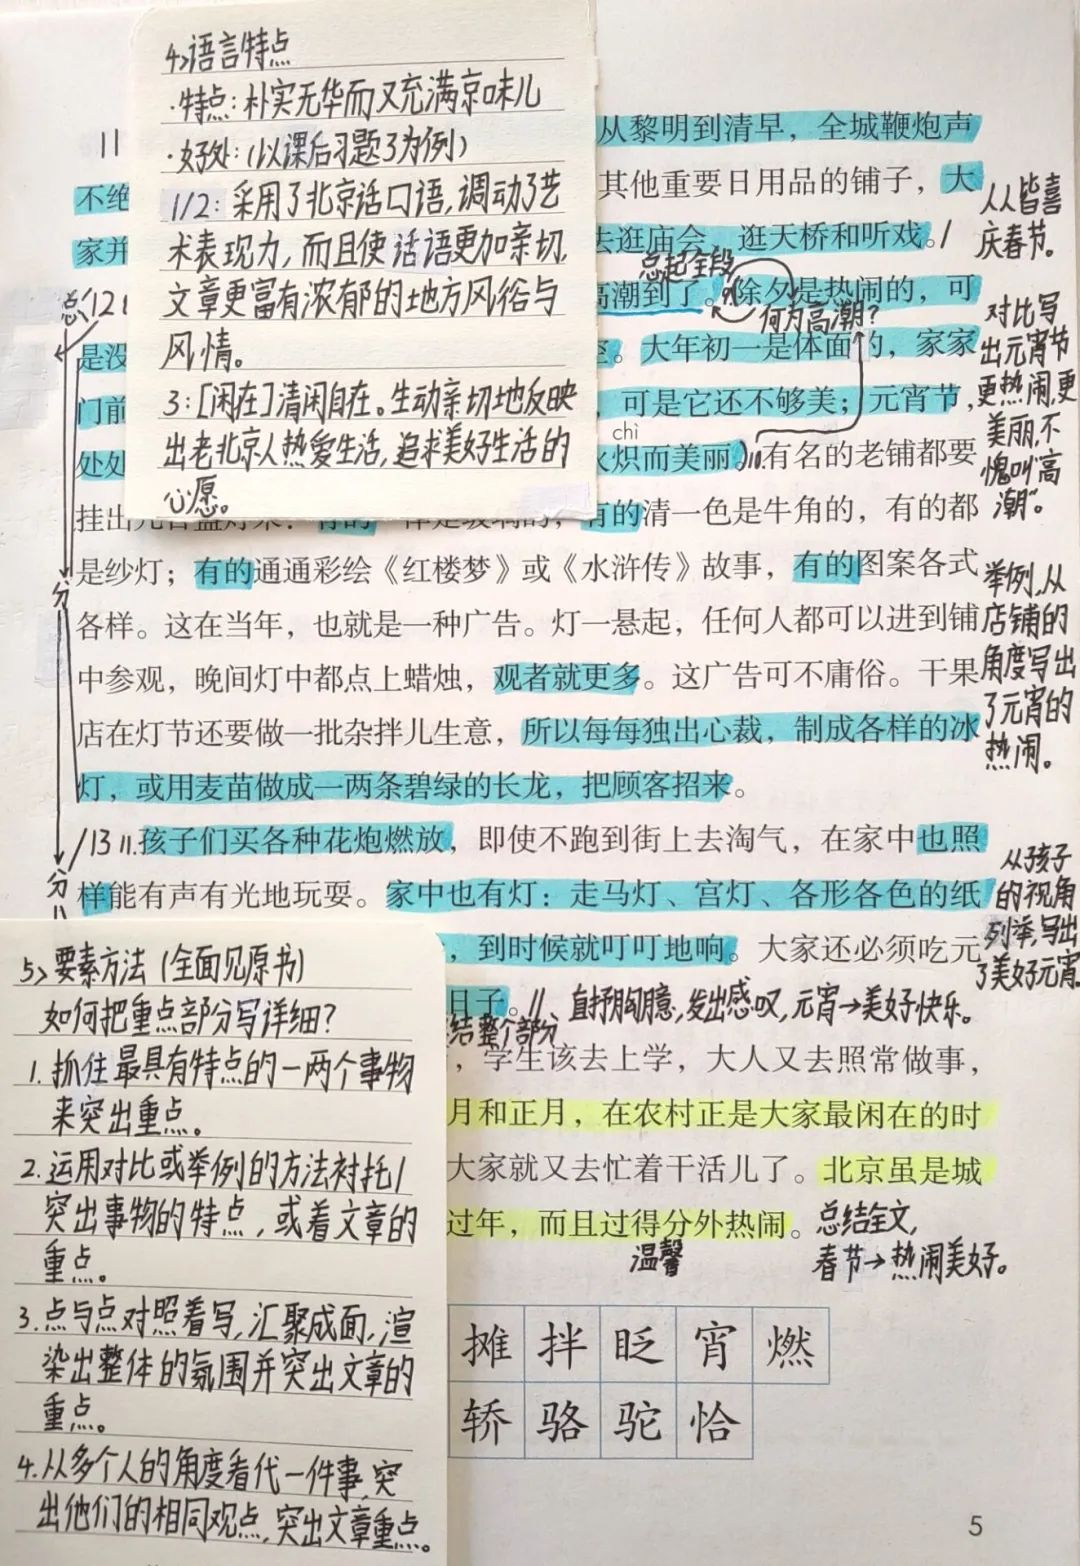 4>语言特点
·特点:朴实无华而又充满京味儿
·好处:(以课后习题3为例)
1/2:采用了北京话口语,调动了艺
术表现力,而且使话语更加亲切,
文章更富有浓郁的地方风俗与
风情。
3:[闲在]清闲自在。生动亲切地反映
出老北京人热爱生活,追求美好生活的
心愿。
11
从黎明到清早，全城鞭炮声
不绝
其他重要日用品的铺子，大
家并
去逛庙会，逛天桥和听戏。/
人人皆喜
庆春节。
总起全段
总
12
高潮到了。除夕是热闹的，可
何为高潮?
是没
。大年初一是体面的，家家
门前
，可是它还不够美；元宵节，
chì
处处
火炽而美丽。有名的老铺都要
对比写
出元宵节
更热闹,更
美丽,不
愧叫“高
潮”。
挂出几百盏灯来：有的一律是玻璃的，有的清一色是牛角的，有的都
是纱灯；有的通通彩绘《红楼梦》或《水浒传》故事，有的图案各式
分
各样。这在当年，也就是一种广告。灯一悬起，任何人都可以进到铺
中参观，晚间灯中都点上蜡烛，观者就更多。这广告可不庸俗。干果
店在灯节还要做一批杂拌儿生意，所以每每独出心裁，制成各样的冰
灯，或用麦苗做成一两条碧绿的长龙，把顾客招来。
举例,从
店铺的
角度写出
了元宵的
热闹。
/13
孩子们买各种花炮燃放，即使不跑到街上去淘气，在家中也照
分
样能有声有光地玩耍。家中也有灯：走马灯、宫灯、各形各色的纸
，到时候就叮叮地响。大家还必须吃元
从孩子
的视角
列举,写出
了美好元宵。
日子。//
直抒胸臆,发出感叹,元宵→美好快乐。
结整个部分
，学生该去上学，大人又去照常做事，
月和正月，在农村正是大家最闲在的时
大家就又去忙着干活儿了。北京虽是城
过年，而且过得分外热闹。
温馨
总结全文,
春节→热闹美好。
5>要素方法(全面见原书)
如何把重点部分写详细?
1.抓住最具有特点的一两个事物
来突出重点。
2.运用对比或举例的方法衬托/
突出事物的特点,或着文章的
重点。
3.点与点对照着写,汇聚成面,渲
染出整体的氛围并突出文章的
重点。
4.从多个人的角度看代一件事,突
出他们的相同观点,突出文章重点。
摊 拌 眨 宵 燃
轿 骆 驼 恰
5